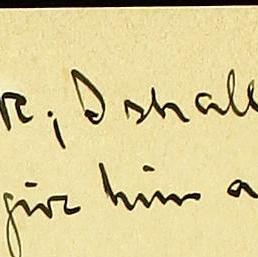 ; I shall
give him a